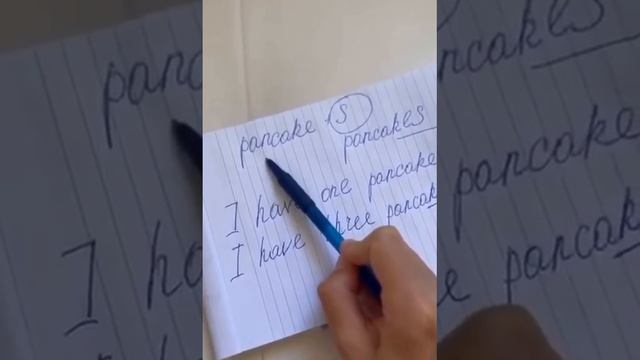 pancake + s pancakes
I have one pancake
I have three pancak